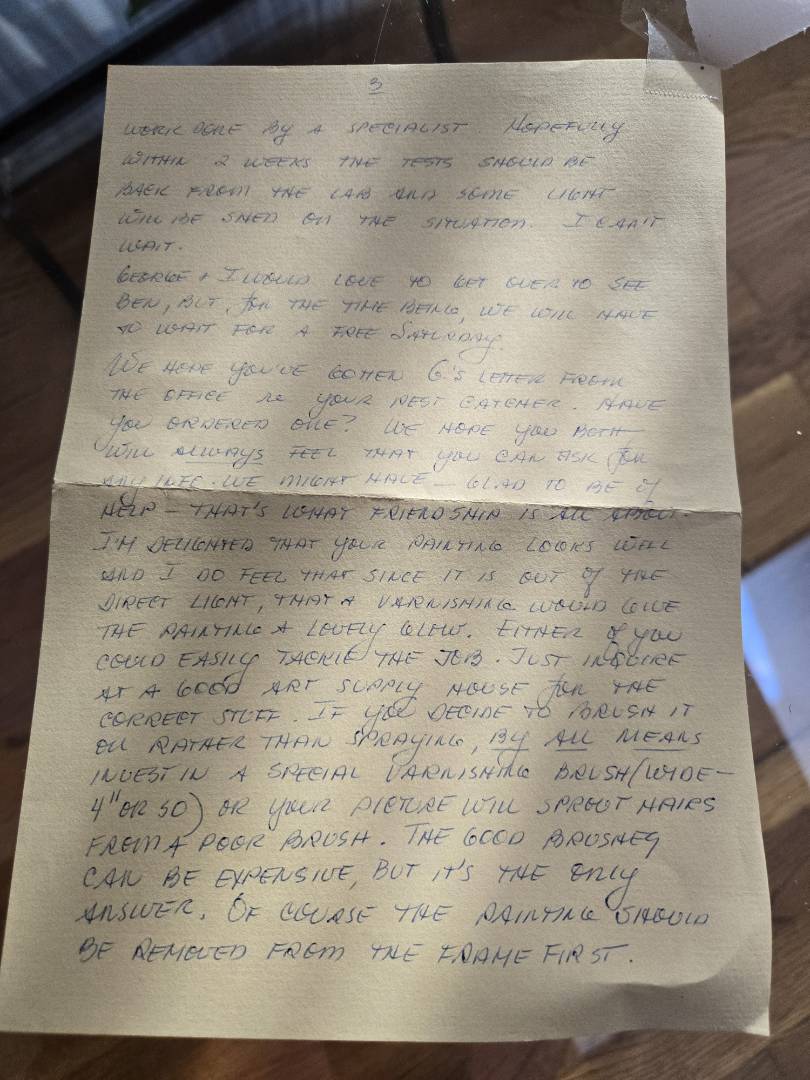 3
WORK DONE BY A SPECIALIST HOPEFULLY
WITHIN 2 WEEKS THE TESTS SHOULD BE
BACK FROM THE LAB AND SOME LIGHT
WILL BE SHED ON THE SITUATION. I CAN'T
WAIT.
GEORGE + I WOULD LOVE TO GET OVER TO SEE
BEN, BUT, for THE TIME BEING, WE WILL HAVE
TO WAIT FOR A FREE SATURDAY.
WE HOPE YOU'VE GOTTEN G.'S LETTER FROM
THE OFFICE re YOUR PEST CATCHER. HAVE
YOU ORDERED ONE? WE HOPE YOU BOTH
WILL ALWAYS FEEL THAT YOU CAN ASK for
ANY INFO. WE MIGHT HAVE – GLAD TO BE of
HELP – THAT'S WHAT FRIENDSHIP IS ALL ABOUT.
I'M DELIGHTED THAT YOUR PAINTING LOOKS WELL
AND I DO FEEL THAT SINCE IT IS OUT of THE
DIRECT LIGHT, THAT A VARNISHING WOULD GIVE
THE PAINTING A LOVELY GLOW. EITHER of YOU
COULD EASILY TACKLE THE JOB. JUST INQUIRE
AT A GOOD ART SUPPLY HOUSE for THE
CORRECT STUFF. IF YOU DECIDE TO BRUSH IT
ON RATHER THAN SPRAYING, BY ALL MEANS
INVEST IN A SPECIAL VARNISHING BRUSH (WIDE –
4" OR SO) OR YOUR PICTURE WILL SPROUT HAIRS
FROM A POOR BRUSH. THE GOOD BRUSHES
CAN BE EXPENSIVE, BUT IT'S THE ONLY
ANSWER. OF COURSE THE PAINTING SHOULD
BE REMOVED FROM THE FRAME FIRST.